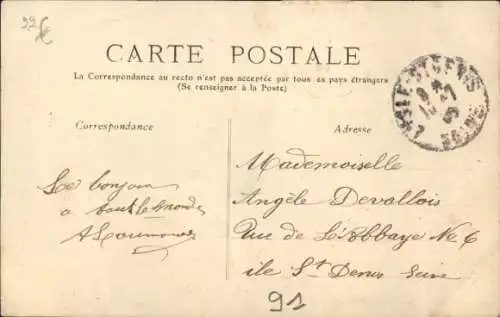 22€
CARTE POSTALE
La Correspondance au recto n'est pas acceptée par tous les pays étrangers
(Se renseigner à la Poste)
Correspondance
Adresse
Le bonjour
a tout le monde
Mademoiselle
Angèle Devallois
Rue de L'Abbaye No 6
ile St Denis Seine
91